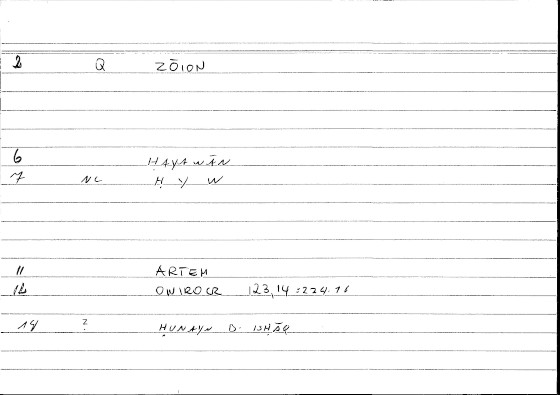 2 Q ZŌION
6 ḤAYAWĀN
7 NC Ḥ Y W
11 ARTEM
12 ONIROCR 123,14 = 224.16
14 ? ḤUNAYN B. ISḤĀQ